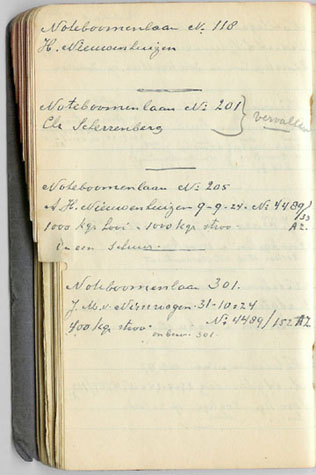 Noteboomenlaan No 118
H. Nieuwenhuizen
Noteboomenlaan No 201
Chr Scherrenberg
vervallen
Noteboomenlaan No 205
A. H. Nieuwenhuizen 9-9-24. No 4489/33
1000 kgr hooi - 1000 kgr stroo A Z.
in een schuur
Noteboomenlaan 301.
J. M. v. 31-10-24
400 kgr stroo. No 4489/152 A Z
301.